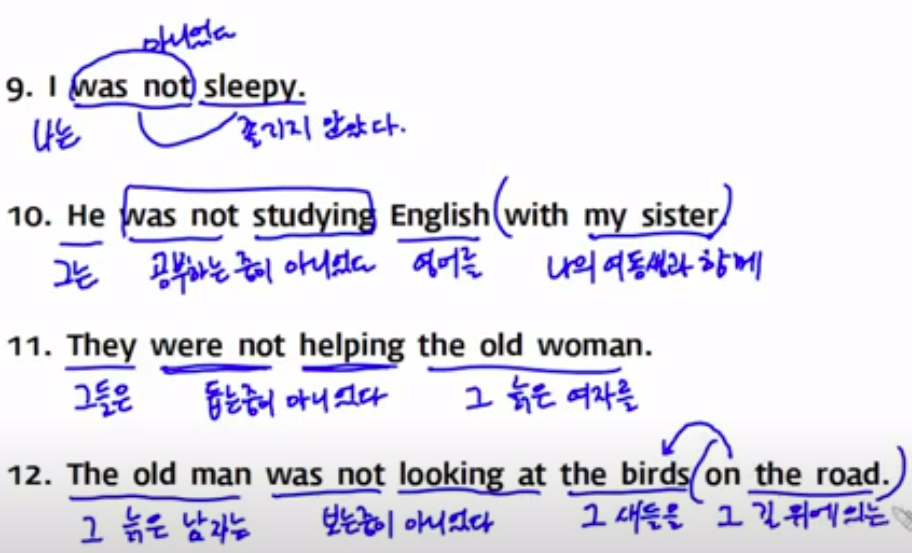 아니었다
9. I was not sleepy.
나는 졸리지 않았다.
10. He was not studying English (with my sister.)
그는 공부하는 중이 아니었다 영어를 나의 여동생과 함께
11. They were not helping the old woman.
그들은 돕는중이 아니었다 그 늙은 여자를
12. The old man was not looking at the birds (on the road.)
그 늙은 남자는 보는중이 아니었다 그 새들을 그 길 위에 있는